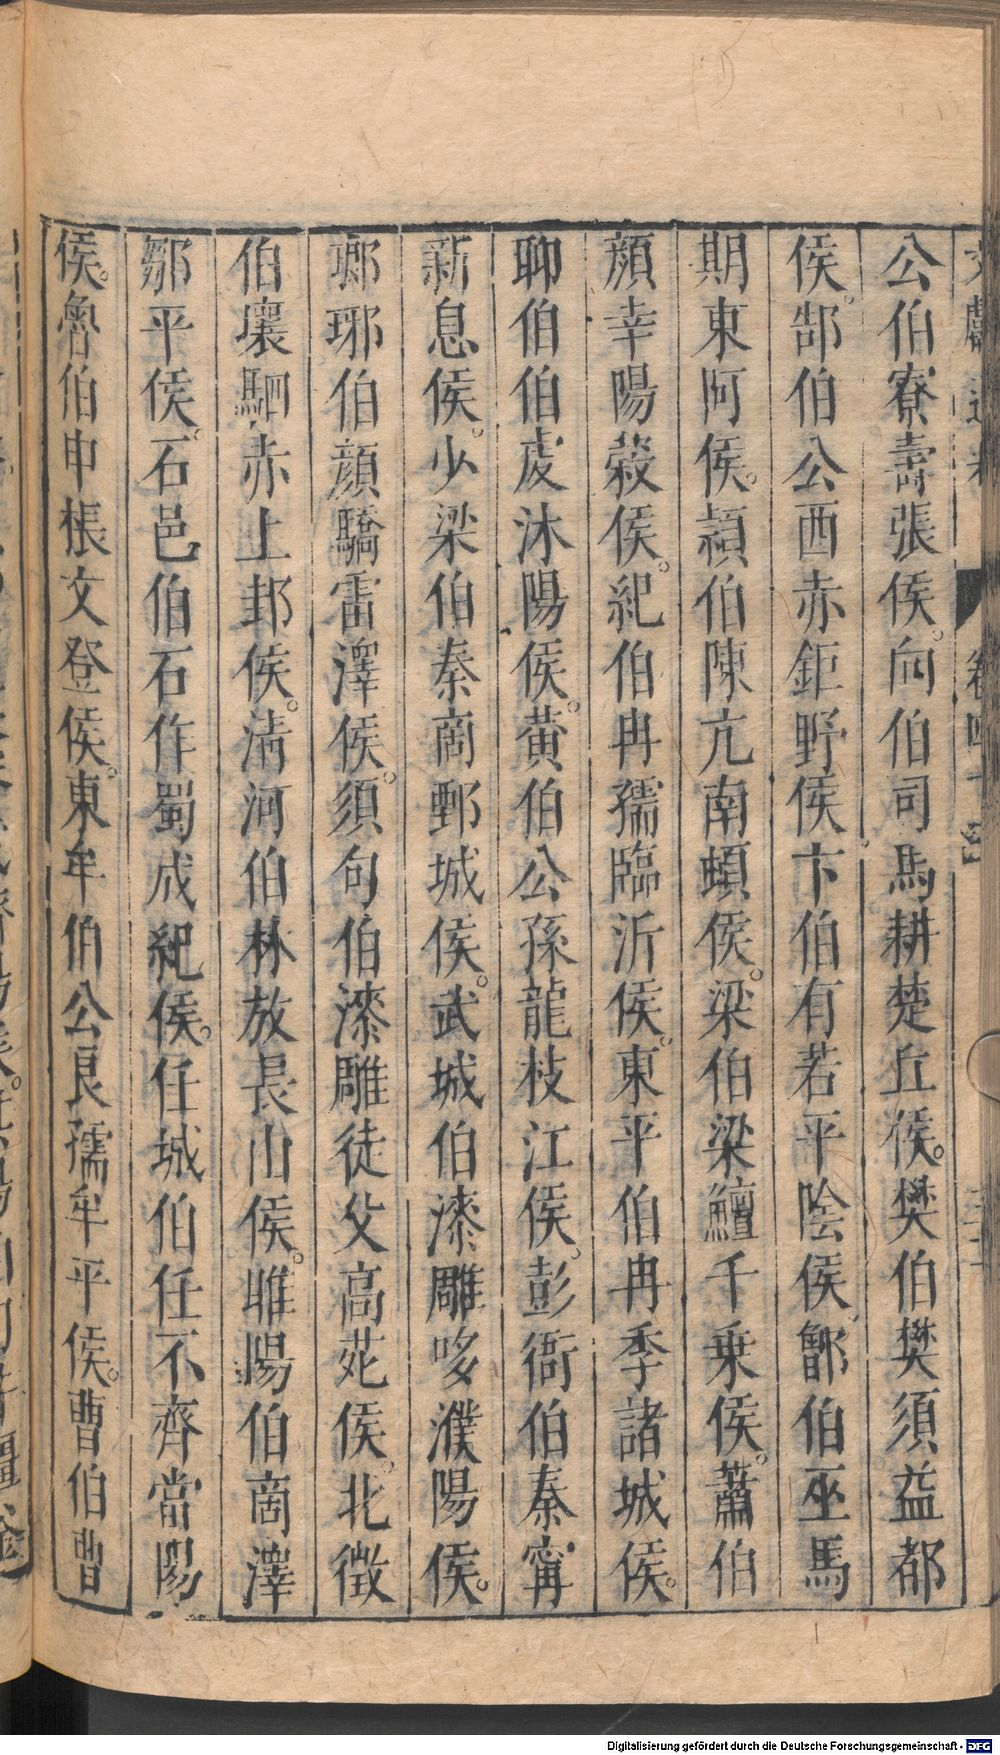 公伯寮壽張侯。向伯司馬耕楚丘侯。樊伯樊須益都
侯。郜伯公西赤鉅野侯卞伯有若平陰侯。鄫伯巫馬
期東阿侯。潁伯陳亢南頓侯。梁伯梁鱣千乗侯。蕭伯
顔幸陽穀侯。紀伯冉孺臨沂侯。東平伯冉季諸城侯。
聊伯伯䖍沐陽侯。黄伯公孫龍枝江侯。彭衙伯秦甯
新息侯。少梁伯秦商鄄城侯。武城伯漆雕哆濮陽侯。
瑯琊伯顔驕雷澤侯。須句伯漆雕徒父高苑侯。北徵
伯壤駟赤上邽侯。淸河伯林放長山侯。睢陽伯商澤
鄒平侯。石邑伯石作蜀成紀侯。任城伯任不齊當陽
侯。魯伯申棖文登侯。東牟伯公良孺牟平侯。曹伯曹
Digitalisierung gefördert durch die Deutsche Forschungsgemeinschaft - DFG